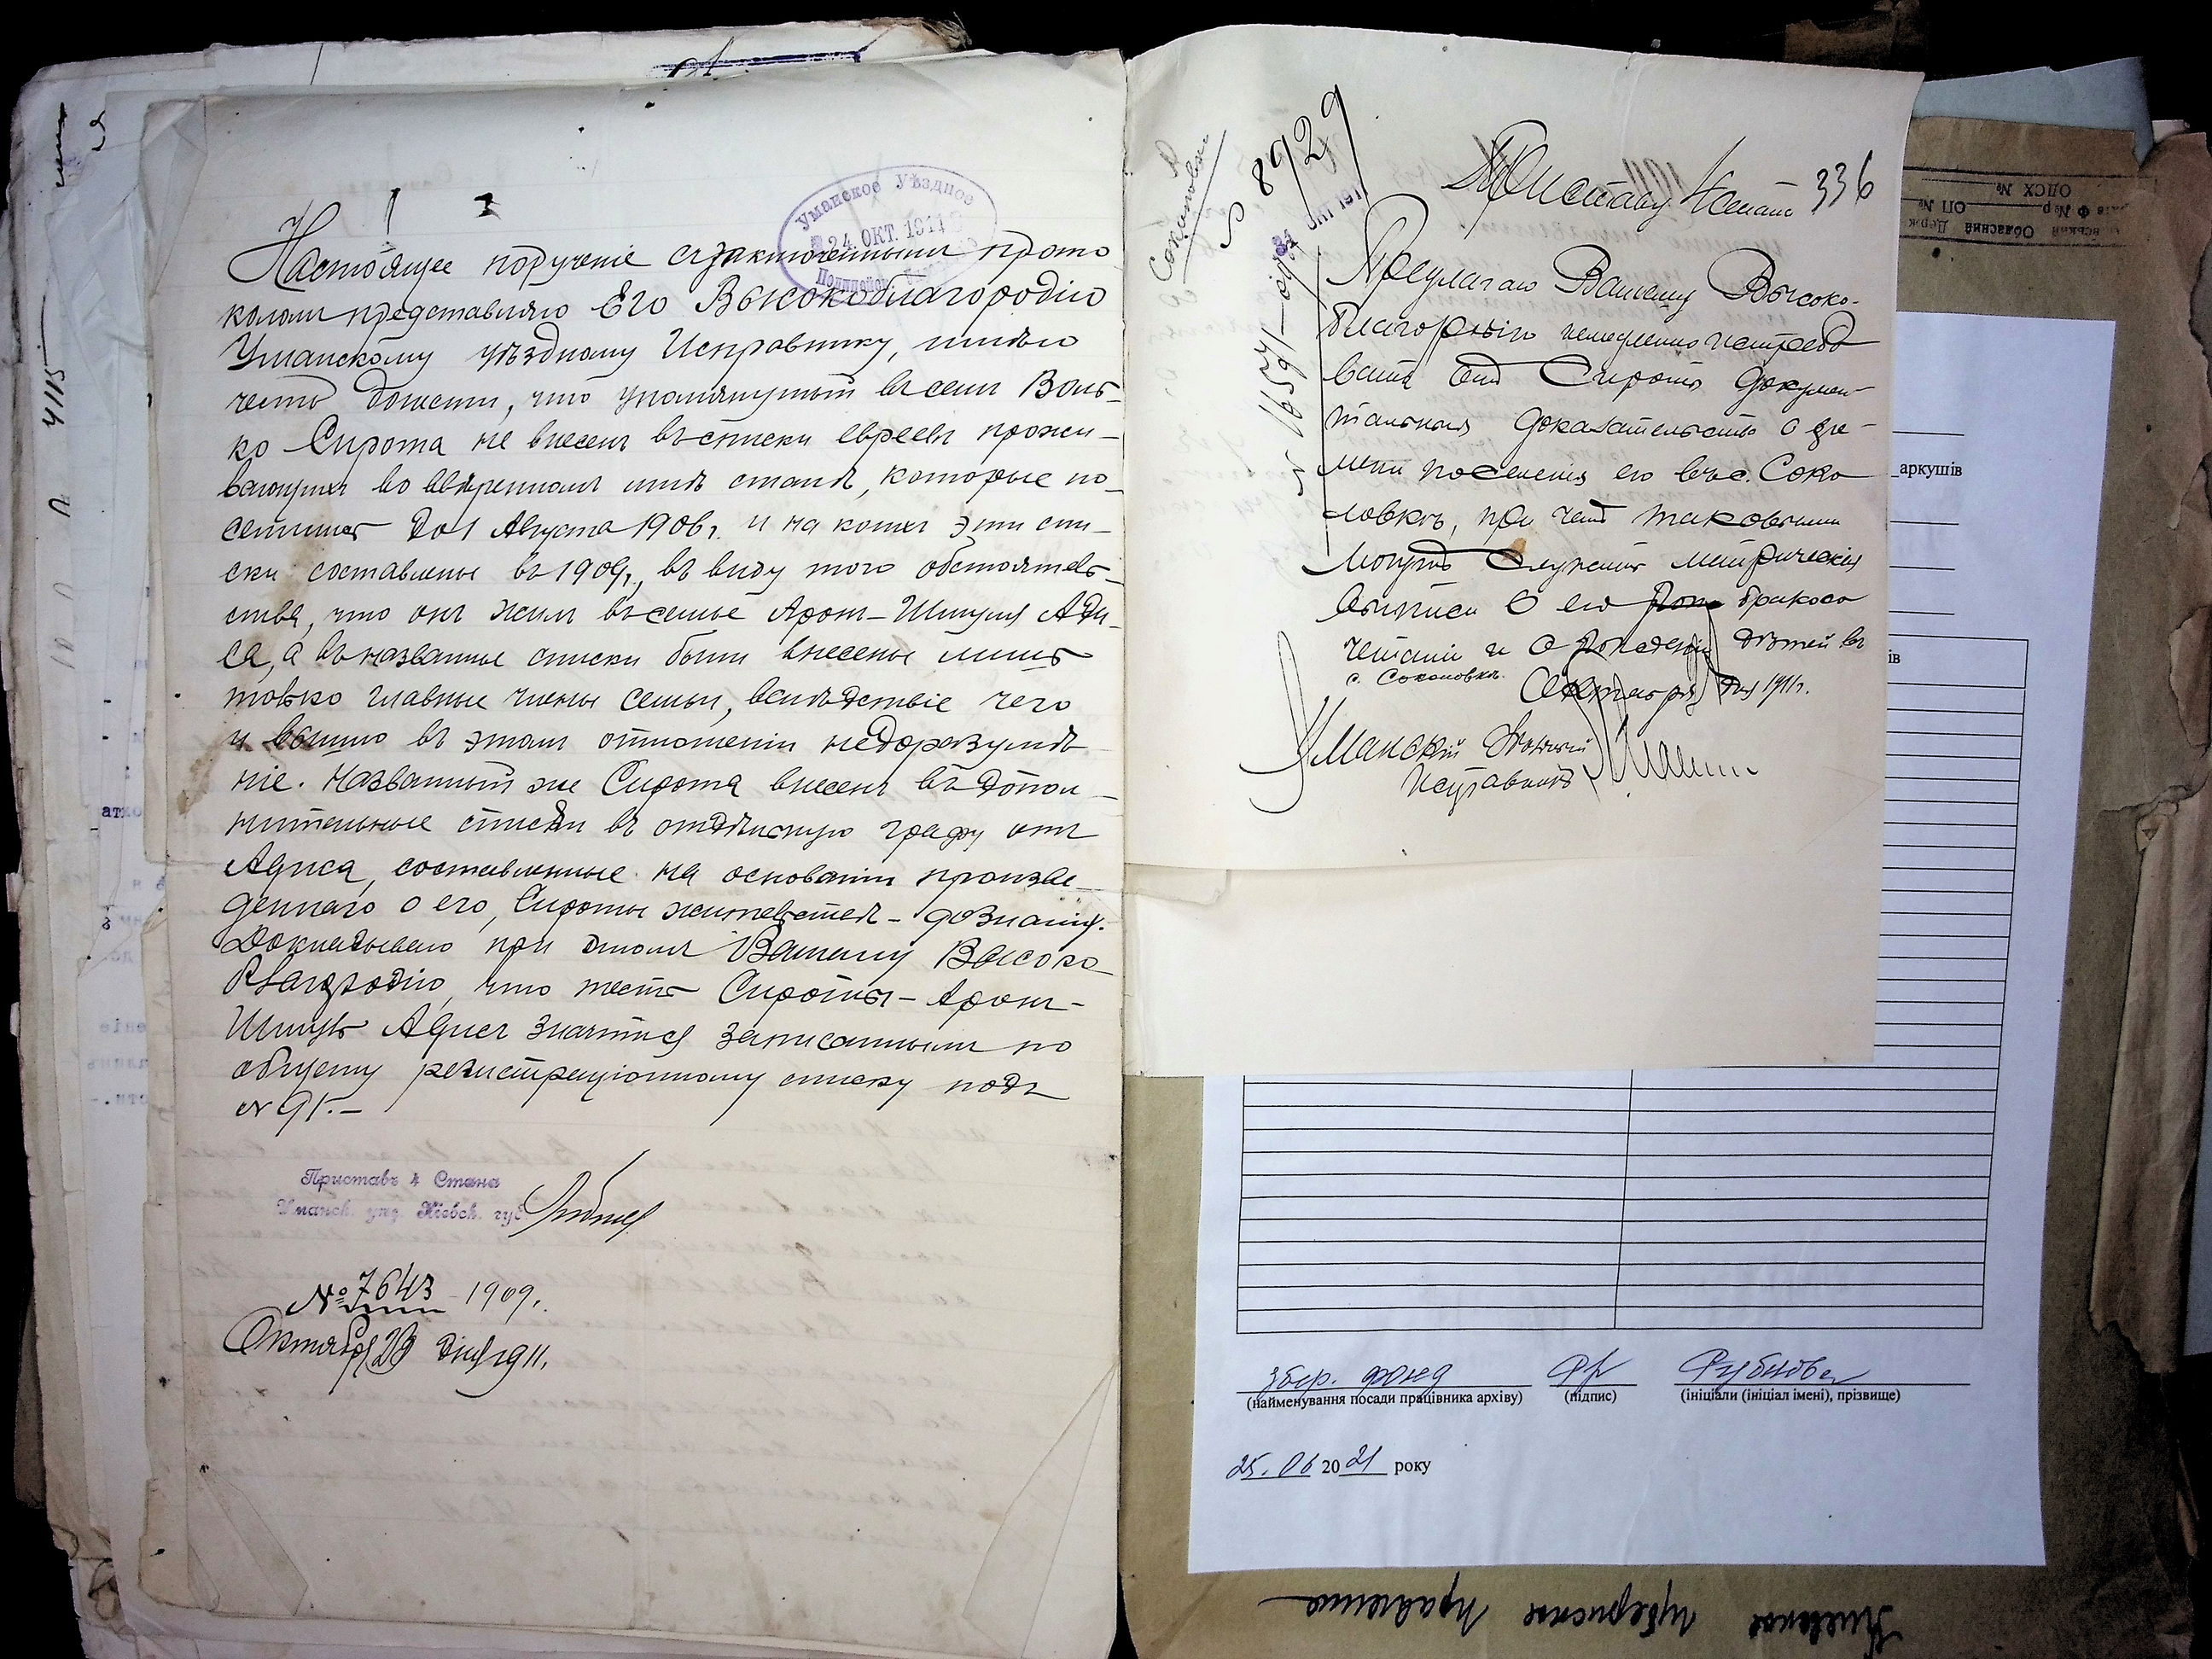 Уманское Уѣздное
24. ОКТ. 1911
Полицейск
Настоящее порученіе съ заключенными прото
коломъ представляю Его Высокоблагородію
Уманскому уѣздному Исправнику, имѣю
честь донести, что упомянутый въ семъ Воль-
ко Сирота не внесенъ въ списки евреевъ прожи-
вающихъ во ввѣренномъ мнѣ станѣ, которые по-
селились до 1 Августа 1906 г. и на коихъ эти спи-
ски составлены въ 1909 г., въ виду того обстоятель-
ства, что онъ жилъ въ семье Аронъ-Шмуля Ади-
са, а въ названные списки были внесены лишь
только главные члены семьи, вслѣдствіе чего
и вышло въ этомъ отношеніи недоразумѣ-
ніе. Названный же Сирота внесенъ въ допол-
нительные списки въ отдѣльную графу отъ
Адиса, составленные на основаніи произве-
деннаго о его, Сироты жительствѣ - дознанія.
Докладываю при этомъ Вашему Высоко
благородію, что тесть Сироты - Аронъ-
Шмуль Адисъ значится записаннымъ по
общему регистраціонному списку подъ
№ 91.-
Приставъ 4 Стана
Уманск. уѣз. Кіевск. губ.
№ 7643 1909.
Октября 23 дня 1911.
4115
№ 8929
Приставу 4 стана
336
№ 16591
Предлагаю Вашему Высоко-
благородію немедленно истребо
вать отъ Сироты докумен-
тальныя доказательства о вре-
мени поселенія его въ с. Соко
ловкѣ, при чемъ таковыми
могутъ служить метрическія
выписи о его бракосо
четаніи и о рожденіи дѣтей въ
с. Соколовкѣ.
Октября дня 1911 г.
Уманскій Уѣздный
Исправникъ
аркушів
ів
збер. фонд
Рубнова
(найменування посади працівника архіву)
(підпис)
(ініціали (ініціал імені), прізвище)
25. 06 2021 року
Киевское губернское правление